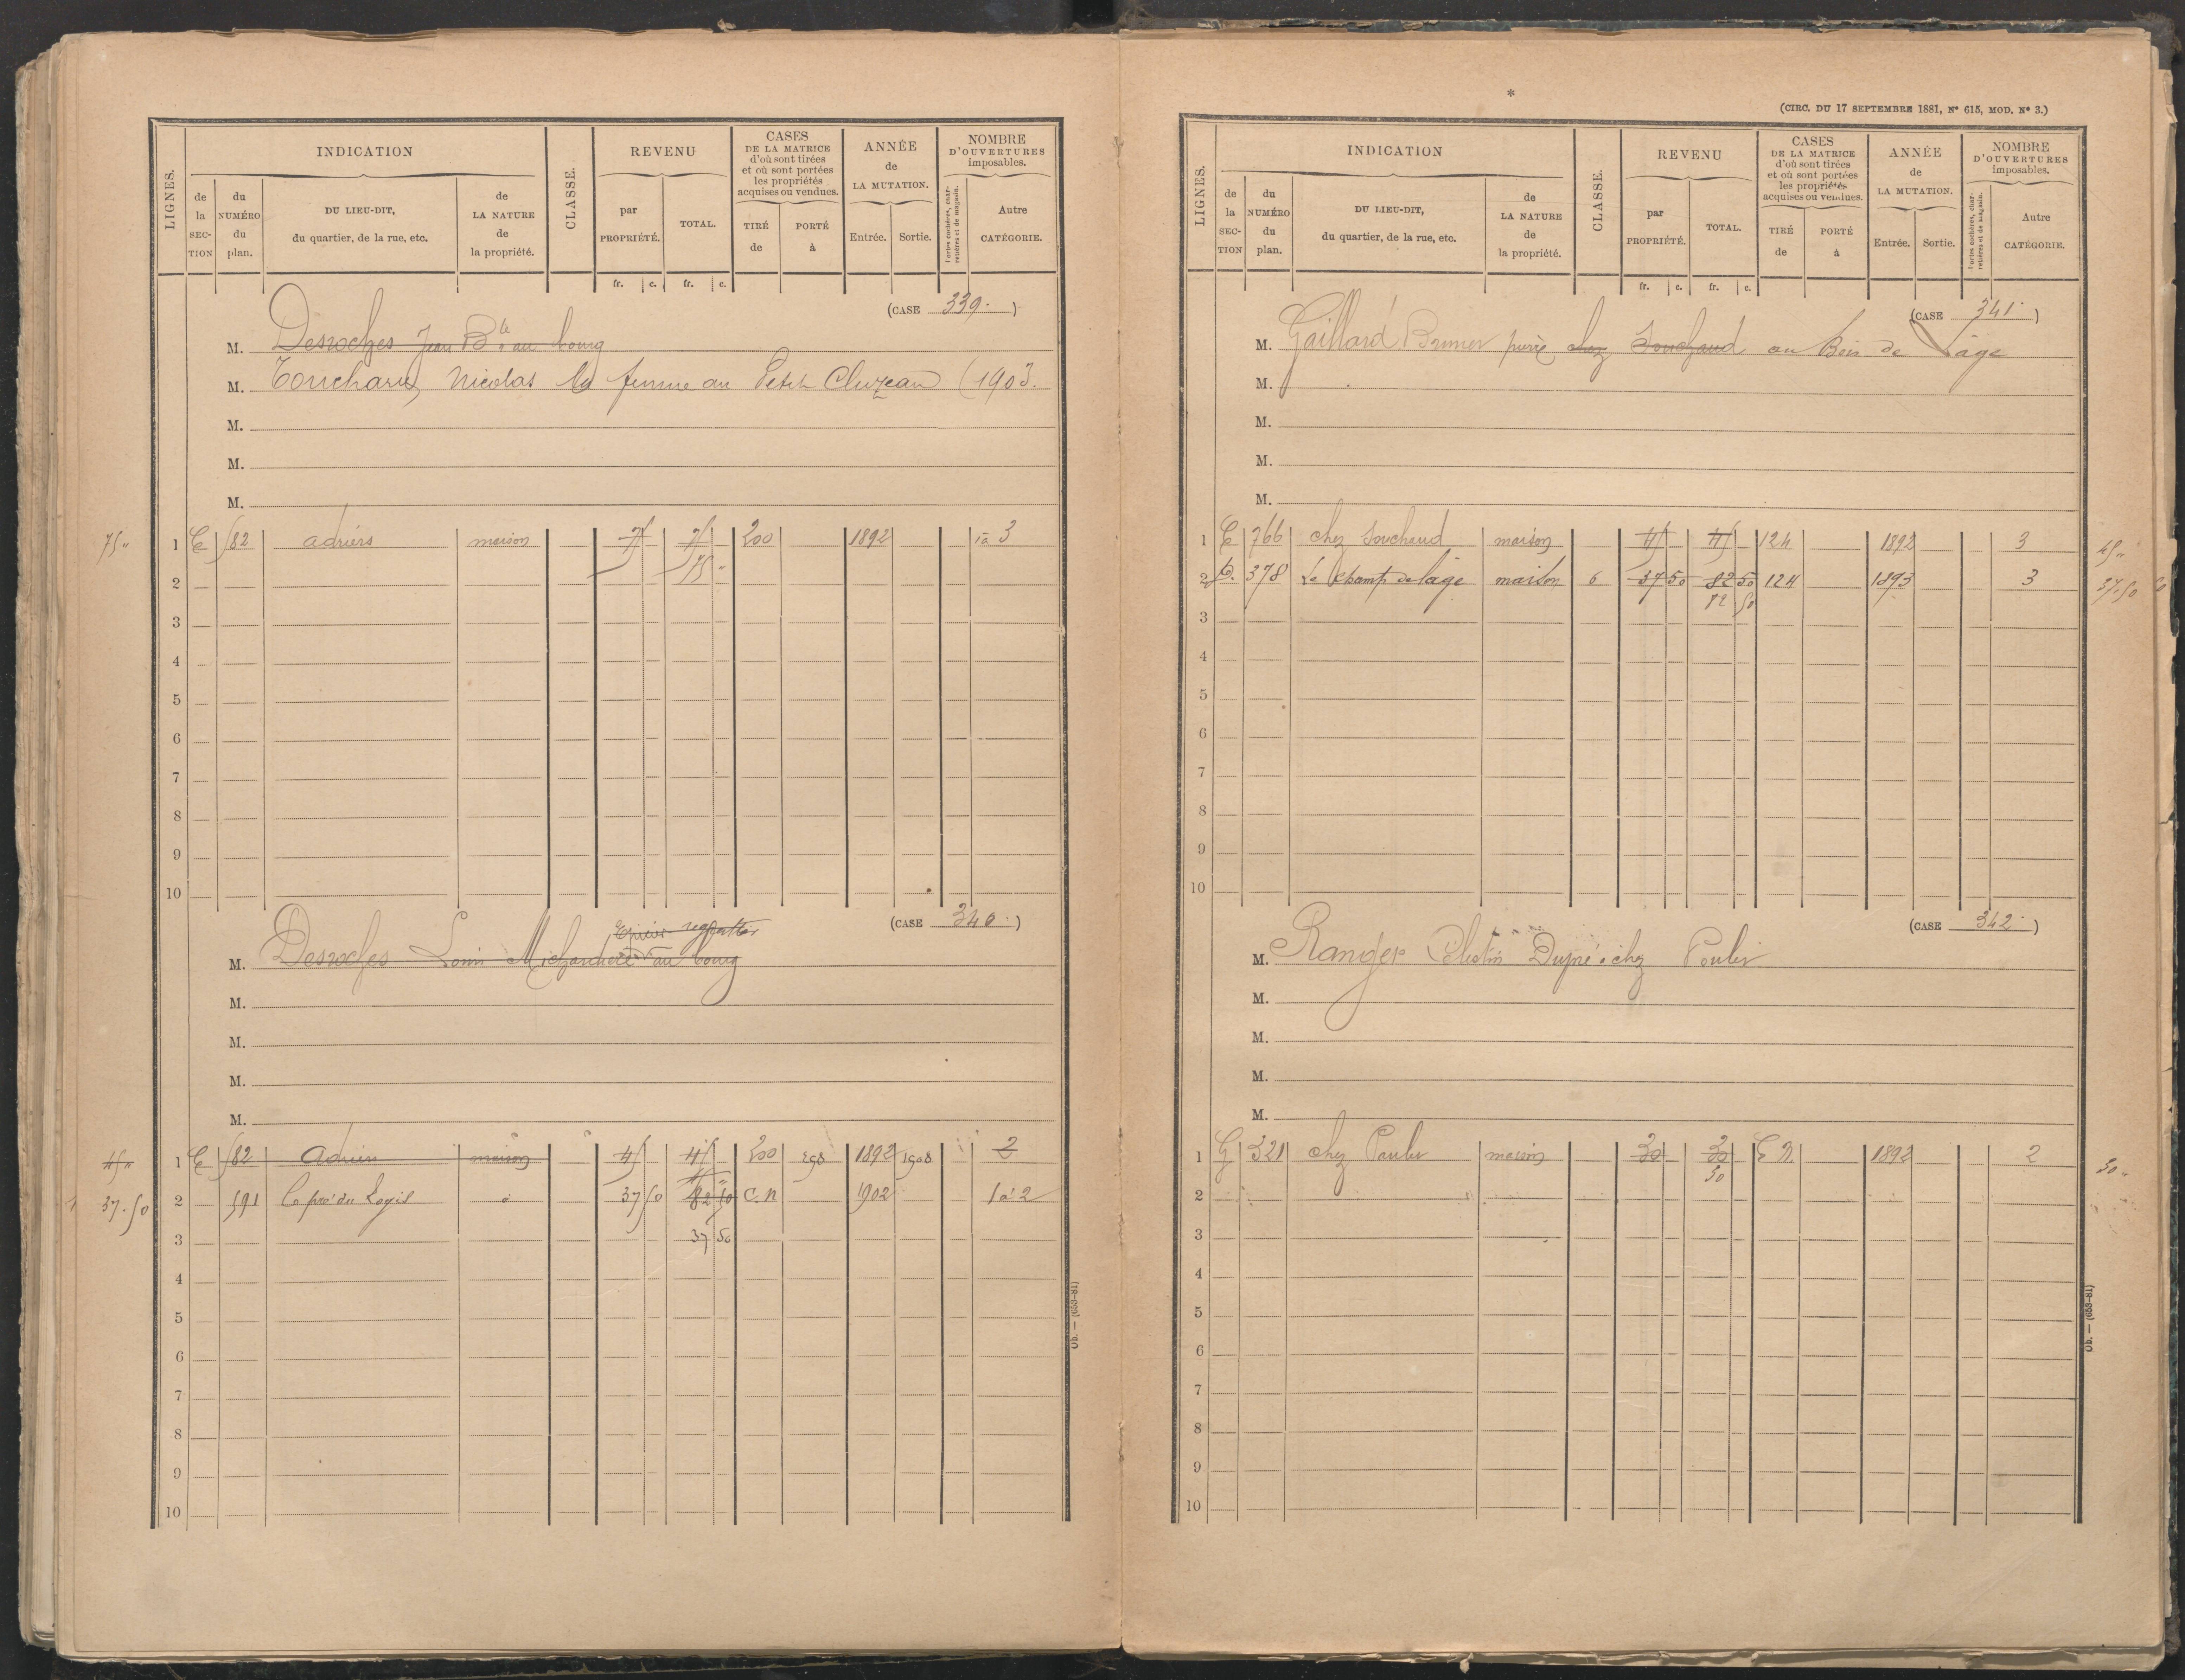 INDICATION
REVENU
CASES
DE LA MATRICE
d'où sont tirées
et où sont portées
les propriétés
acquises ou vendues.
ANNÉE
de
LA MUTATION.
NOMBRE
D'OUVERTURES
imposables.
LIGNES.
de la SECTION
du NUMÉRO du plan.
DU LIEU-DIT,
du quartier, de la rue, etc.
de LA NATURE de la propriété.
CLASSE.
par PROPRIÉTÉ.
TOTAL.
TIRÉ de
PORTÉ à
Entrée.
Sortie.
Portes cochères, charretières et de magasin.
Autre CATÉGORIE.
fr. c. fr. c.
(CASE 339.)
M. Desroches Jean Bte au bourg
M. Nicolas la femme au Petit Cluzeau (1903.
M.
M.
M.
75 " 1 E 582 adriers maison 75 75 200 1892 3
2 75 "
3
4
5
6
7
8
9
10
(CASE 340.)
M. Desroches Louis au bourg
M.
M.
M.
M.
45 " 1 E 582 Adriers maison 45 45 200 298 1892 1908 2
37.50 2 591 Le pré du Logis 37 50 82 50 C.N 1902 1 à 2
3 37 50
4
5
6
7
8
9
10
Ob. — (653-81)
*
(CIRC. DU 17 SEPTEMBRE 1881, N° 615, MOD. N° 3.)
INDICATION
REVENU
CASES
DE LA MATRICE
d'où sont tirées
et où sont portées
les propriétés
acquises ou vendues.
ANNÉE
de
LA MUTATION.
NOMBRE
D'OUVERTURES
imposables.
LIGNES.
de la SECTION
du NUMÉRO du plan.
DU LIEU-DIT,
du quartier, de la rue, etc.
de LA NATURE de la propriété.
CLASSE.
par PROPRIÉTÉ.
TOTAL.
TIRÉ de
PORTÉ à
Entrée.
Sortie.
Portes cochères, charretières et de magasin.
Autre CATÉGORIE.
fr. c. fr. c.
(CASE 341.)
M. Gaillard Brunier pierre chez Souchaud au Bois de Lage
M.
M.
M.
M.
1 E 766 chez Souchaud maison 45 45 124 1892 3 45 "
2 D. 378 Le Champ de lage maison 6 37 50 82 50 124 1893 3 37.50
3 82 50
4
5
6
7
8
9
10
(CASE 342.)
M. Ranger Célestin Dupré chez Poulier
M.
M.
M.
M.
1 G 321 chez maison 30 30 C N. 1892 2 30 "
2 30
3
4
5
6
7
8
9
10
Ob. — (653-81)